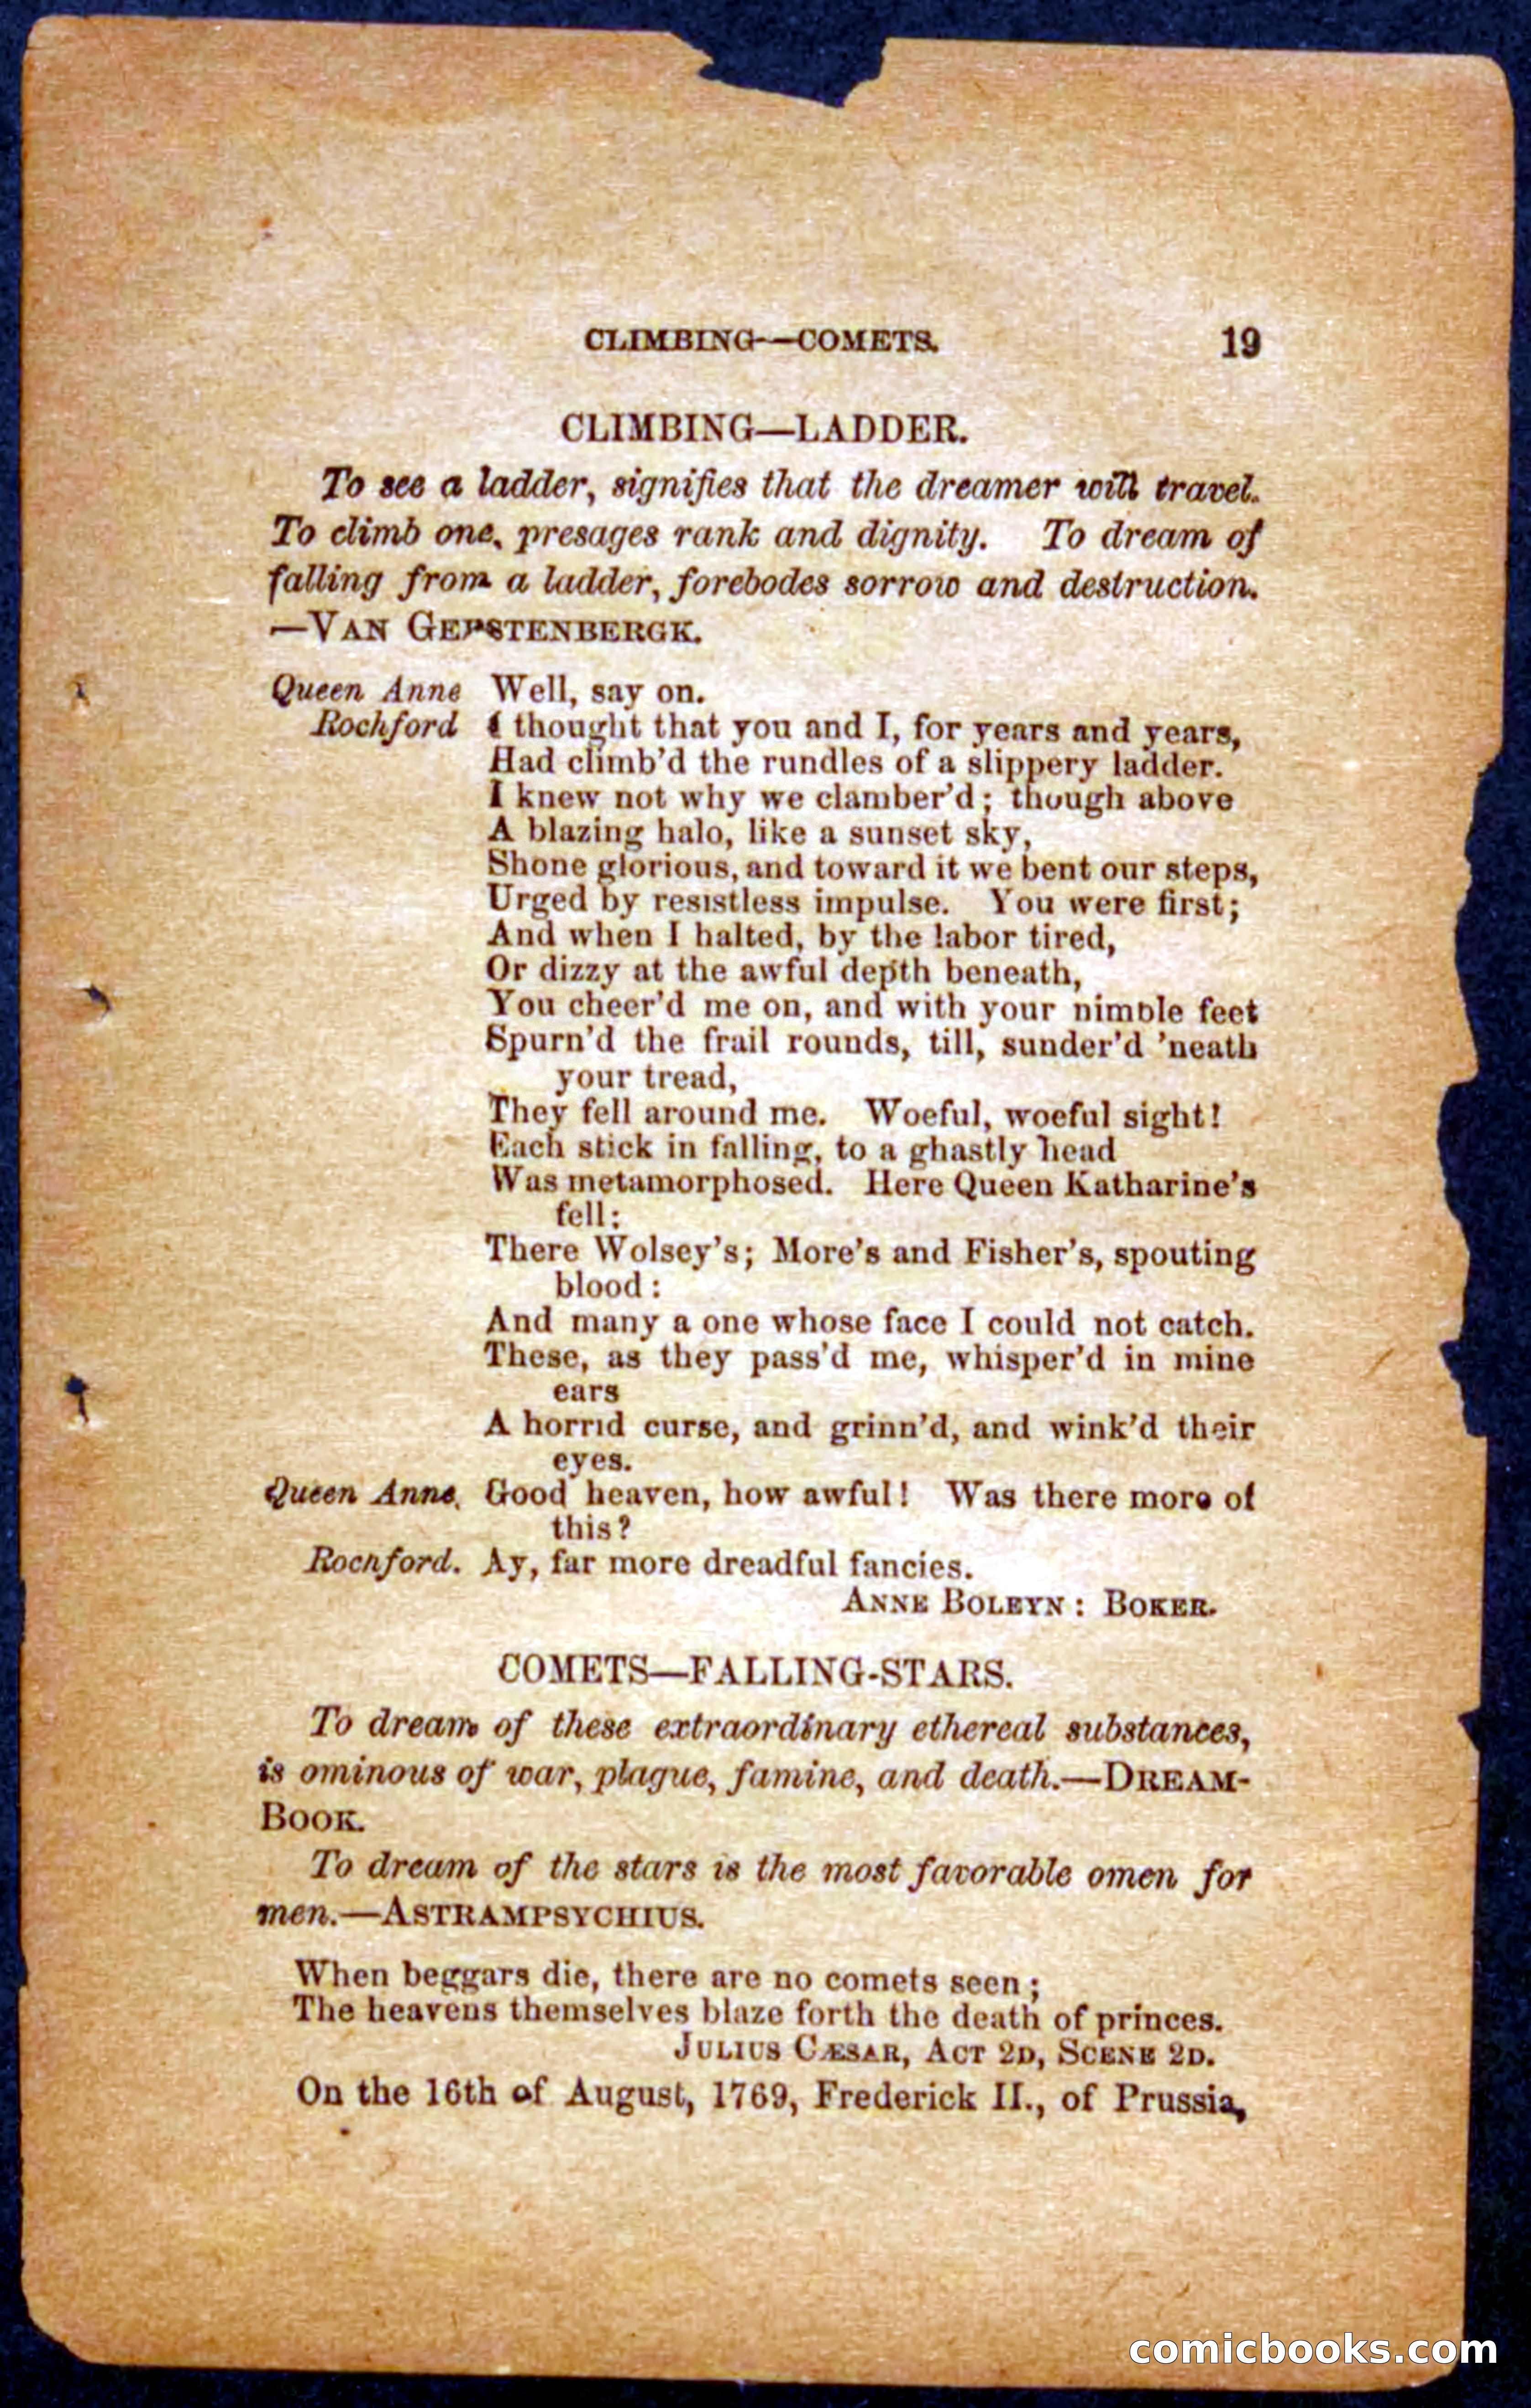 CLIMBING—COMETS. 19
CLIMBING—LADDER.
To see a ladder, signifies that the dreamer will travel.
To climb one, presages rank and dignity. To dream of
falling from a ladder, forebodes sorrow and destruction.
—VAN GERSTENBERGK.
Queen Anne Well, say on.
Rochford I thought that you and I, for years and years,
Had climb'd the rundles of a slippery ladder.
I knew not why we clamber'd; though above
A blazing halo, like a sunset sky,
Shone glorious, and toward it we bent our steps,
Urged by resistless impulse. You were first;
And when I halted, by the labor tired,
Or dizzy at the awful depth beneath,
You cheer'd me on, and with your nimble feet
Spurn'd the frail rounds, till, sunder'd 'neath
your tread,
They fell around me. Woeful, woeful sight!
Each stick in falling, to a ghastly head
Was metamorphosed. Here Queen Katharine's
fell:
There Wolsey's; More's and Fisher's, spouting
blood:
And many a one whose face I could not catch.
These, as they pass'd me, whisper'd in mine
ears
A horrid curse, and grinn'd, and wink'd their
eyes.
Queen Anne. Good heaven, how awful! Was there more of
this?
Rochford. Ay, far more dreadful fancies.
ANNE BOLEYN: BOKER.
COMETS—FALLING-STARS.
To dream of these extraordinary ethereal substances,
is ominous of war, plague, famine, and death.—DREAM-
BOOK.
To dream of the stars is the most favorable omen for
men.—ASTRAMPSYCHIUS.
When beggars die, there are no comets seen;
The heavens themselves blaze forth the death of princes.
JULIUS CÆSAR, ACT 2D, SCENE 2D.
On the 16th of August, 1769, Frederick II., of Prussia,
comicbooks.com